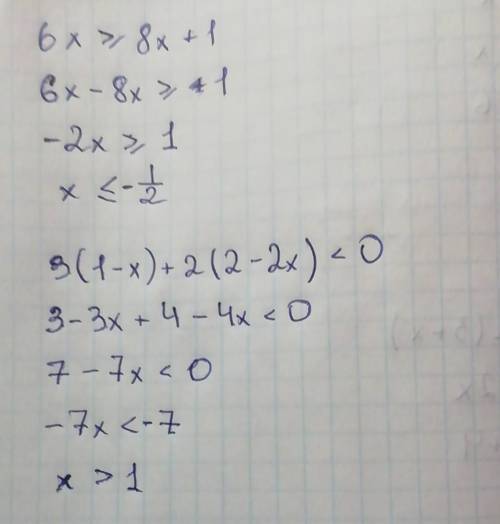 6x ⩾ 8x + 1
6x - 8x ⩾ 1
-2x ⩾ 1
x ≤ -1/2
3(1-x) + 2(2-2x) < 0
3 - 3x + 4 - 4x < 0
7 - 7x < 0
-7x < -7
x > 1